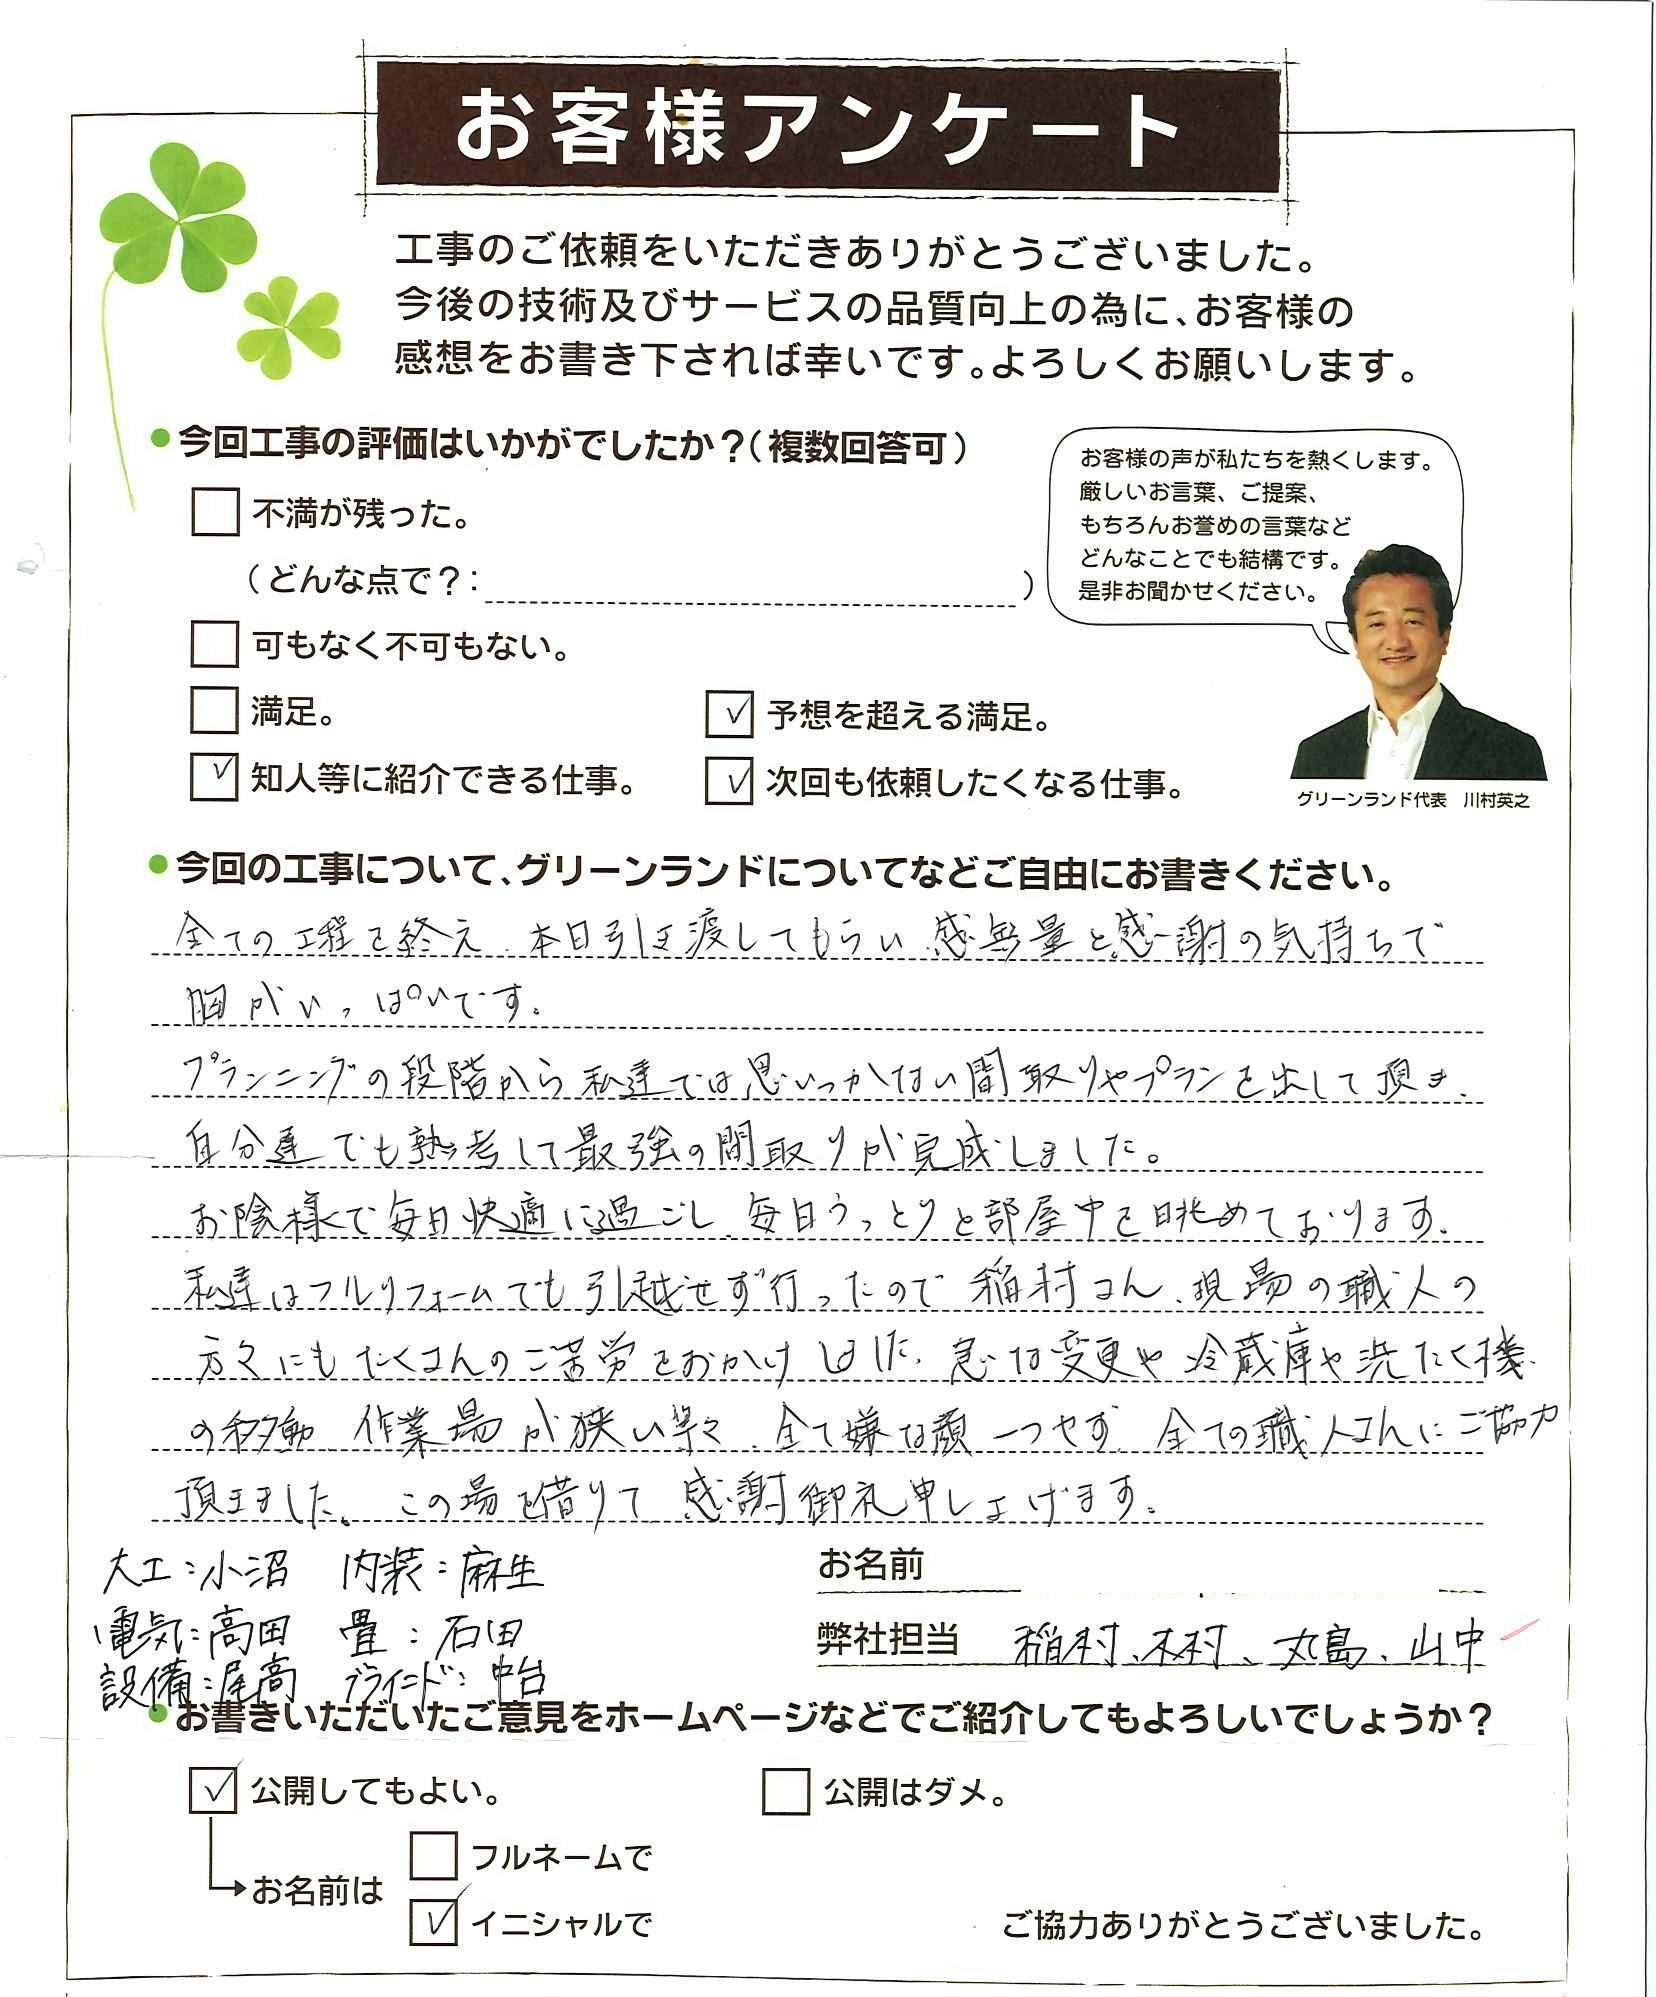 お客様アンケート
工事のご依頼をいただきありがとうございました。
今後の技術及びサービスの品質向上の為に、お客様の
感想をお書き下されば幸いです。よろしくお願いします。
●今回工事の評価はいかがでしたか？（複数回答可）
不満が残った。
（どんな点で？：　　　）
可もなく不可もない。
満足。
✓予想を超える満足。
✓知人等に紹介できる仕事。
✓次回も依頼したくなる仕事。
お客様の声が私たちを熱くします。
厳しいお言葉、ご提案、
もちろんお誉めの言葉など
どんなことでも結構です。
是非お聞かせください。
グリーンランド代表　川村英之
●今回の工事について、グリーンランドについてなどご自由にお書きください。
全ての工程を終え、本日引き渡してもらい、感無量と感謝の気持ちで
胸がいっぱいです。
プランニングの段階から私達では思いつかない間取りやプランを出して頂き、
自分達でも熟考して最強の間取りが完成しました。
お陰様で毎日快適に過ごし、毎日うっとりと部屋中を眺めております。
私達はフルリフォームでも引越せず行ったので稲村さん、現場の職人の
方々にもたくさんのご苦労をおかけしました。急な変更や冷蔵庫や洗たく機
の移動　作業場が狭い等々、全て嫌な顔一つせず、全ての職人さんにご協力
頂きました。この場を借りて感謝御礼申し上げます。
大工：小沼　内装：麻生
電気：高田　畳：石田
設備：尾高　ブラインド：中台
お名前
弊社担当　稲村、木村、丸島、山中
●お書きいただいたご意見をホームページなどでご紹介してもよろしいでしょうか？
✓公開してもよい。
公開はダメ。
お名前は
フルネームで
✓イニシャルで
ご協力ありがとうございました。